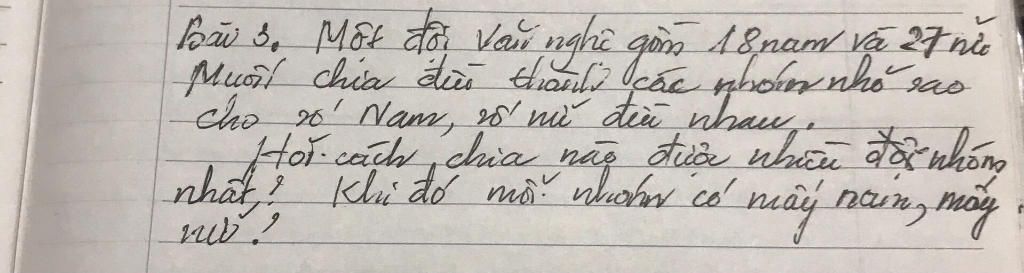 Bài 3. Một đội văn nghệ gồm 18 nam và 27 nữ
Muốn chia đều thành các nhóm nhỏ sao
cho số Nam, số nữ đều nhau.
Hỏi cách chia nào được nhiều đội nhóm
nhất? Khi đó mỗi nhóm có mấy nam, mấy
nữ?